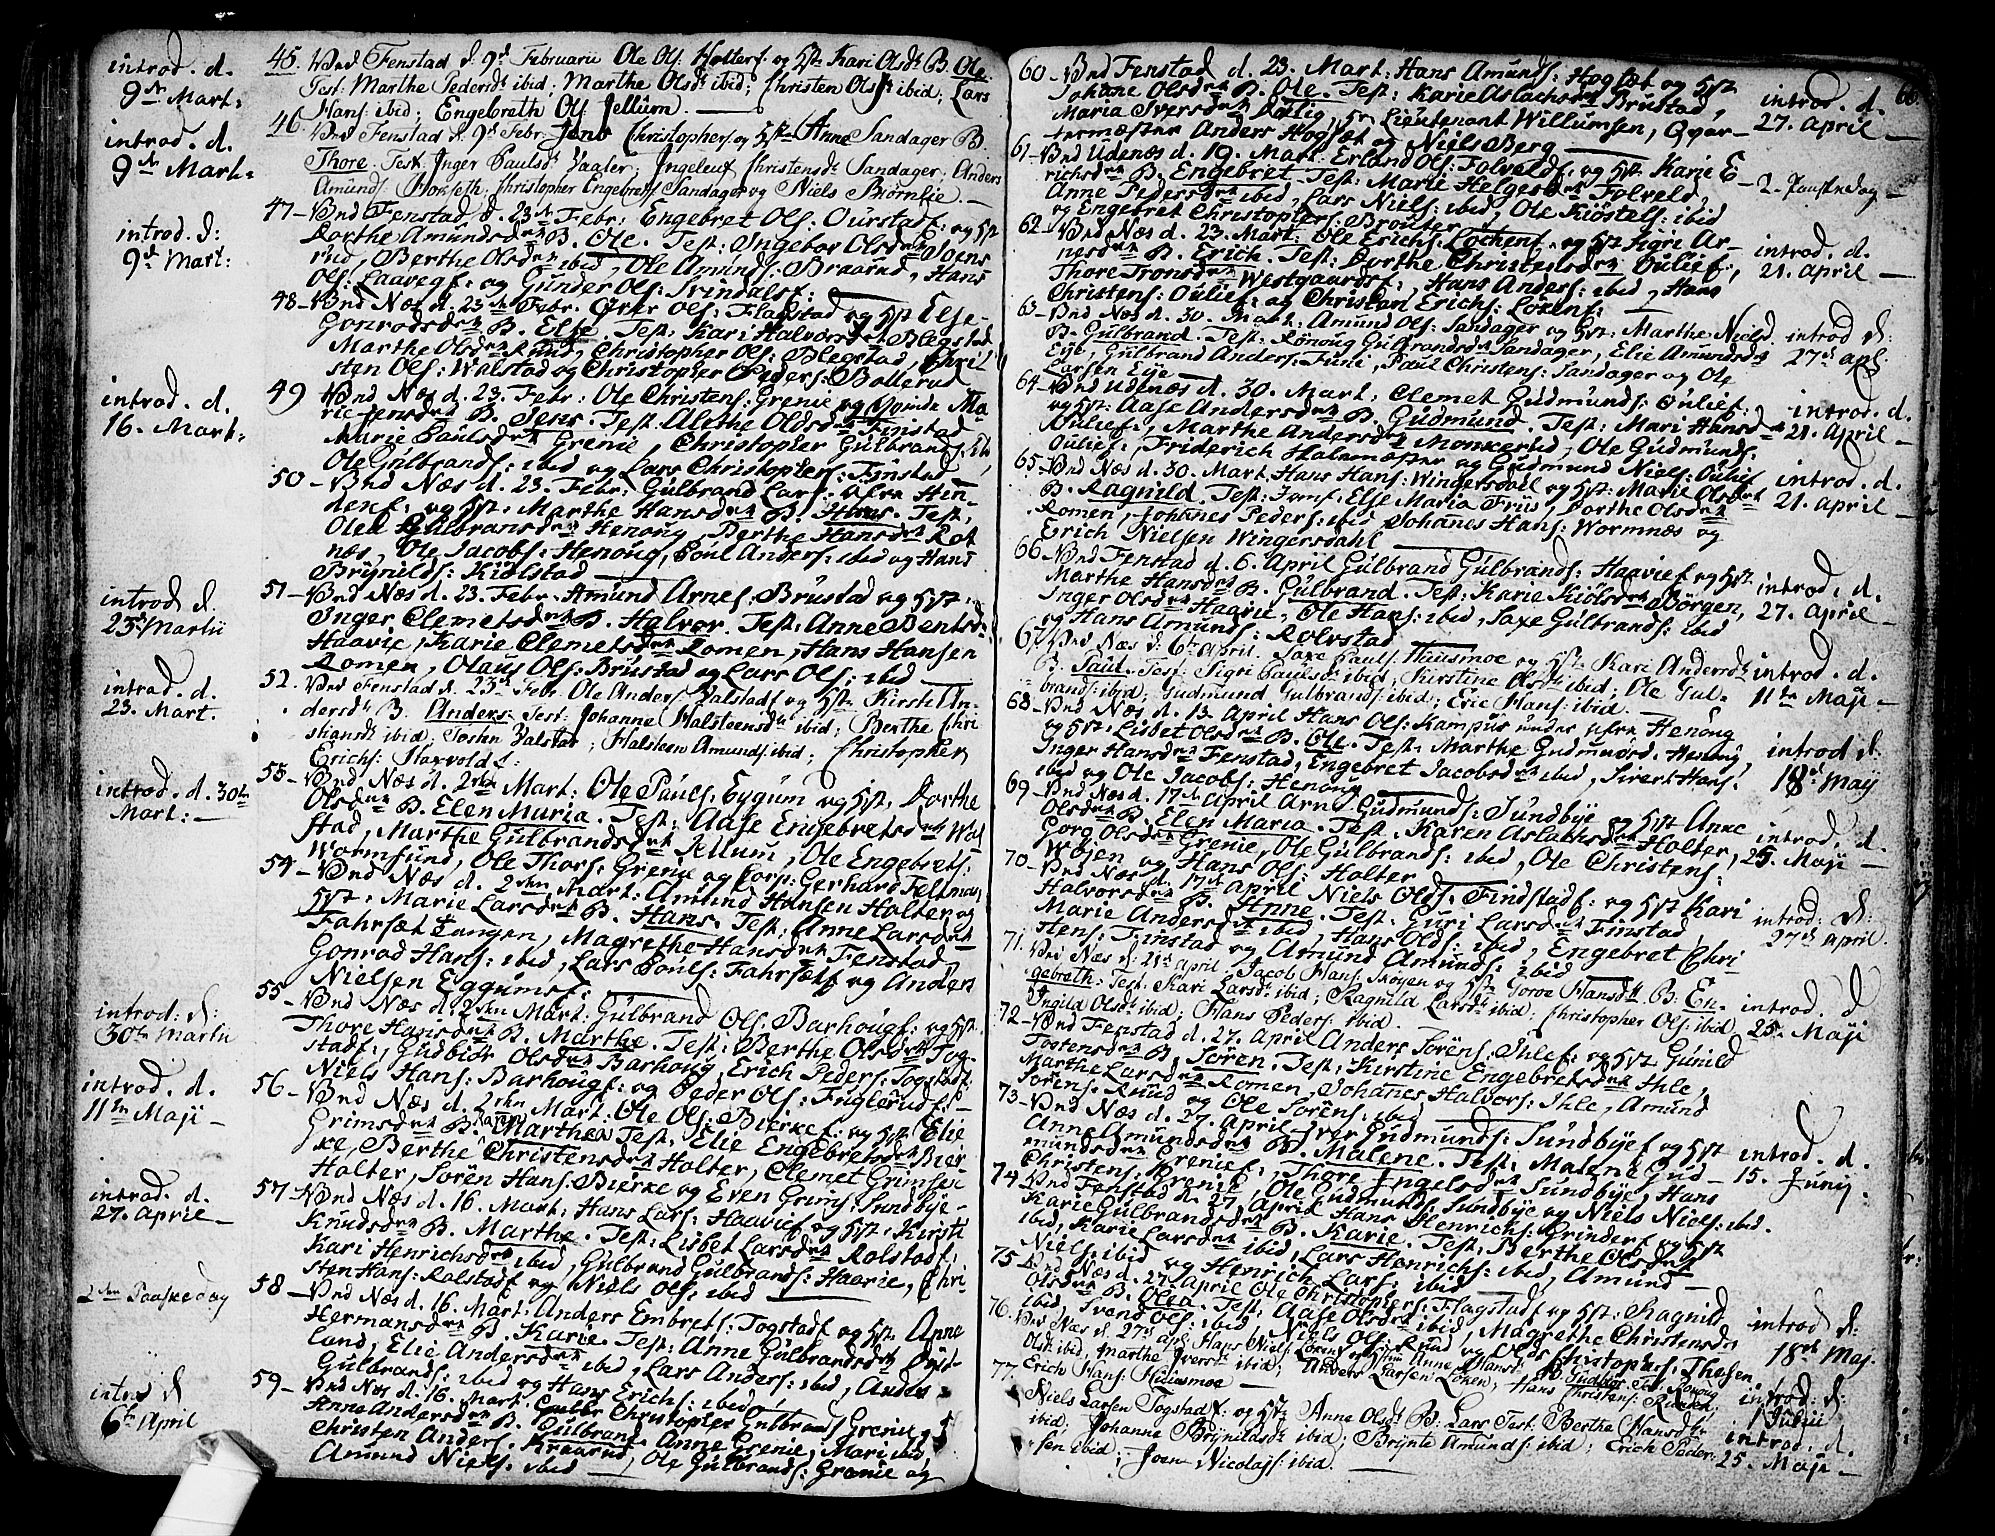 introd. d.
9de Mart:
45. Vnd Fenstad d. 9de Februarii Ole Ols: Holters: og Hst: Kari Olsdtr B. Ole
Test: Marthe Pedersdtr ibid; Marthe Olsdtr ibid; Christen Ols: ibid; Lars
Hans: ibid; Engebreth Ols: Jellum.
introd. d.
9de Mart:
46. Vnd Fenstad d. 9de Febr. Jens Christophers: og Hst: Anne Sandager B.
Thore. Test: Inger Paulsdtr Vaaler; Ingeleuf Christensdtr Sandager; Anders
Amunds: Horseth; Christopher Engebrets: Sandager og Niels Biørnlie.
introd. d:
9de Mart:
47 - Vnd Fenstad d. 23de Febr: Engebret Ols: Ourstadf: og Hst
Dorthe Amundsdttr B. Ole. Test: Ingebor Olsdttr Joens
rud, Berthe Olsdttr ibid, Ole Amunds: Braarud, Hans
Ols: Laavegf: og Gunder Ols: Svindalsf:
48 - Vnd Næs d. 23de Febr. Ofver Ols: Flagstad og Hst Else
Gonradsdttr B. Else. Test: Kari Halvorsdttr Blegstad
Marthe Olsdttr Rund, Christopher Ols: Blegstad, Chri
sten Ols: Walstad og Christopher Peders: Bollerud
introd. d.
16. Mart:
49 Vnd Næs d. 23. Febr: Ole Christens: Grenie og Qvinde Ma
rie Jensdttr B. Jens. Test: Alethe Oldsdttr Finstad
Marie Paulsdttr Grenie, Christopher Gulbrands: ib,
Ole Gulbrands: ibid og Lars Christophers: Finstad
50 - Vnd Næs d. 23. Febr: Gulbrand Lars: Hen-
nenf: og Hst: Marthe Hansdttr B. Hans. Test:
Olea Gulbransdttr Henoug, Berthe Hansdttr Rot
næs, Ole Jacobs: Henoug, Poul Anders: ibid og Hans
Brynilds: Kiølstad
introd d.
23de Martii
51 - Vnd Næs d. 23. Febr. Amund Arnes: Brustad og Hst:
Inger Clemetsdttr B. Halvor. Test: Anne Bentsd:
Haavie, Karie Clemetsdttr Romen, Hans Hansen
Romen, Olaus Ols: Brustad og Lars Ols: ibid
introd. d.
23. Mart.
52. Vnd Fenstad d. 23de Febr. Ole Anders: Valstadf og Hst: Kirsti An-
dersdtr B. Anders. Test: Johanne Halsteensdtr ibid; Berthe Chri
stiansdtr ibid. Tosten Valstad; Halsteen Amunds: ibid; Christopher
Erichs: Haxvolds:
introd. d. 30te
Mart:
53 - Vnd Næs d. 2den Mart: Ole Pauls: Eygum og Hst. Dorthe
Olsdttr B. Elen Maria. Test: Aase Engebretsdttr Wal
stad, Marthe Gulbrandsdttr Jellum, Ole Engebrets:
Wormsund, Ole Thors: Grenie og Corp: Gerhard Feltman
54 - Vnd Næs d. 2den Mart: Amund Hansen Holter og
Hst: Marie Larsdttr B. Hans. Test: Anne Larsdttr
Fahrsæt Langen, Magrethe Hansdttr Fenstad
Gonrad Hans: ibid, Lars Pouls: Fahrsætf og Anders
Nielsen Eggumsf:
introd: d:
30te Martii
55 - Vnd Næs d. 2den Mart: Gulbrand Ols: Barhougf: og Hst.
Thore Hansdttr B. Marthe. Test: Berthe Olsdttr Tog-
stadf:, Gudbiør Olsdttr Barhoug, Erich Peders: Togstadf:
Niels Hans: Barhougf: og Peder Ols: Fuglerudf:
introd. d.
11te Maji -
56 - Vnd Næs d. 2den Mart: Ole Ols: Bierkef: og Hst: Elie
Grimsdttr B. Karen Marthea Test: Elie Engebretsdttr Bier
ke, Berthe Christensdttr Holter, Clemet Grimsen
Holter, Søren Hans: Bierke og Even Grims: Sundbye -
introd. d.
27. April -
57 - Vnd Næs d. 16. Mart: Hans Lars: Haavief og Hst: Kirsti
Knudsdttr B. Marthe. Test: Lisbet Larsdttr Rolstadf:
Kari Henrichsdttr ibid, Gulbrand Gulbrands: Haavie, Chri
sten Hans: Rolstadf og Niels Ols: ibid
2den Paaskedag
58 - Vnd Næs d. 16. Mart: Anders Embrets: Togstadf og Hst: Anne
Hermansdttr B. Karie. Test: Anne Gulbrandsdttr
land, Elie Andersdttr ibid, Lars Anders: ibid, Anders
Gulbrands: ibid og Hans Erichs: ibid
introd d
6te April
59 - Vnd Næs d. 16. Mart. Christopher Gulbrands: Grenie og H
Anne Andersdttr B. Gulbrand. Anne Grenie, Mari ibid,
Christen Anders: Kraarud, Ole Gulbrands: Grenie og
Amund Niels: ibid
60 - Vnd Fenstad d. 23. Mart: Hans Amunds: Hogsæt og Hst
Johane Olsdttr B. Ole. Test: Karie Aslachsdttr Brustad,
Maria Iversdttr Døtlig, Hr Lieutenant Willumsen, Qvar-
termester Anders Hogsæt og Niels Berg
introd. d.
27. April -
61 - Vnd Udenæs d. 19. Mart: Erland Ols: Folveldf: og Hst: Karie E
richsdttr B. Engebret. Test: Marie Helgesdttr Folveld,
Anne Pedersdttr ibid, Lars Niels: ibid, Ole Kiøstels: ibid
og Engebret Christophers: Brouter
- 2. Paaskedag -
62 - Vnd Næs d. 23. Mart: Ole Erichs: Løchenf: og Hst Sigri Ar-
nesdttr B. Erich. Test: Dorthe Christensdttr Oulief:,
Thore Tronsdttr Westgaardsf:, Hans Anders: ibid, Hans
Christens: Oulief: og Christian Erichs: Løkens:
introd. d.
21. April -
63 - Vnd Næs d. 30. Mart: Amund Ols: Sandager og Hst: Marthe Nielsd
B. Gulbrand. Test: Ronoug Gulbrandsdttr Sandager, Elie Amundsdtr
Eye, Gulbrand Anders: Funi, Paul Christens: Sandager og Ole
Larsen Eye
introd d:
27de apl.
64 - Vnd Udenæs d. 30. Mart: Clemet Gudmunds: Oulief:
og Hst: Aase Andersdttr B. Gudmund. Test: Mari Hansdttr
Oulief:, Marthe Andersdttr Monkerud, Ole Gudmunds:
Oulief:, Friderich Halemester og Gudmund Niels: Oulief
introd. d.
21. April -
65 - Vnd Næs d. 30. Mart. Hans Hans: Wingersdal og Hst: Marie Olsdttr
B. Ragnild. Test: Jomf: Else Maria Friis, Dorthe Olsdttr
Romen, Johanes Peders: ibid, Johanes Hans: Wormnæs og
Erich Nielsen Wingersdahl
introd. d.
21. april -
66 - Vnd Fenstad d. 6. April Gulbrand Gulbrands: Haavief og Hst.
Marthe Hansdttr B. Gulbrand. Test: Karie Kiølsdttr Børgen,
Inger Olsdttr Haavie, Ole Hans: ibid, Saxe Gulbrands: ibid
og Hans Amunds: Rolvstad
introd. d.
27. April -
67. Vnd Næs d: 6te April. Saxe Pauls: Huusmoe og Hst: Kari Andersdtr
B. Paul. Test: Sigri Paulsdtr ibid; Kirstine Olsdtr ibid; Ole Gul-
brands: ibid; Gudmund Gulbrands: ibid; Eric Hans: ibid.
introd. d.
11te Maji -
68 - Vnd Næs d. 13. April Hans Ols: Kampus under Henoug
og Hst: Lisbet Olsdttr B. Ole. Test: Marthe Gudmundsd. Henoug,
Inger Hansdttr Fenstad, Engebret Jacobsdttr ibid, Sivert Hans:
ibid og Ole Jacobs: Henoug
introd d:
18de Maij
69 - Vnd Næs d. 17de April Arne Gudmunds: Sundbye og Hst Anne
Olsdttr B. Elen Maria. Test: Karen Aslachsdttr Holter,
Gorg Olsdttr Grenie, Ole Gulbrands: ibid, Ole Christens:
Wøjen og Hans Ols: Holter
introd. d.
25. Maji -
70. Vnd Næs d. 17de April Niels Olds: Findstadf: og Hst Kari
Halvorsdttr B. Anne. Test: Guri Larsdttr Finstad
Marie Andersdttr ibid, Hans Olds: ibid, Engebret Chri
stens: Finstad og Amund Amunds: ibid
introd: d:
27de April.
71. Vnd Næs d: 21de April. Jacob Hans: Skogen og Hst: Goroe Hansdtr. B. En-
gebreth. Test: Kari Larsdtr ibid; Ragnild Larsdtr ibid; Christopher Ols: ibid.
Ingild Olsdtr ibid; Hans Peders: ibid.
introd. d
25. Maji
72 - Vnd Fenstad d. 27. April Anders Sørens: Ihlef: og Hst Gunild
Tostensdttr B. Søren. Test: Kirstine Engebretsdttr Ihle,
Marthe Larsdttr Romen, Johanes Halvors: Ihle, Amund
Sørens: Ruud og Ole Sørens: ibid
73 - Vnd Næs d. 27. April Iver Gudmunds: Sundbyef og Hst
Anne Amundsdttr B. Malene. Test: Malene Gud-
mundsdttr Grenief:, Thore Ingelsdttr Sundbye, Hans
Christens: Grenie, Ole Gudmunds: Sundbye og Niels Niels: ibid.
introd. d.
15. Junij.
74 - Vnd Fenstad d. 27. April Hans Henrichs: Grinderf og Hst
Karie Gulbrandsdttr B. Karie. Test: Berthe Olsdttr
ibid, Karie Larsdttr ibid, Lars Henrichs: ibid, Amund
Niels: ibid og Henrich Lars: ibid
75 - Vnd Næs d. 27. April Ole Christophers: Flagstadf og Hst: Ragnild
Olsdttr B. Olea. Test: Aase Olsdttr ibid, Magrethe Christensdtr
ibid, Svend Ols: ibid, Niels Ols: Ruud og Olds Christophers: Thesen.
introd d:
18de Maj.
76. Vnd Næs d. 27de apl. Hans Niels: Løken og Hst: Anne Hansdtr B. Gulbior Test: Ronoug
Olsdtr ibid, Marthe Iversdtr ibid; Anders Larsen Løken, Hans Christens: Rukken,
Erich Hans: Huusmoe
introd: d:
1 Julii
77. Niels Larsen Togstadf: og Hst: Anne Olsdtr B: Lars Test: Berthe Hansdtr
ibid. Johanne Brynildsdtr ibid; Brynte Amunds: ibid; Erich Peder-
sen ibid; Joen Nicolajs: ibid.
introd. d.
25. Maji -